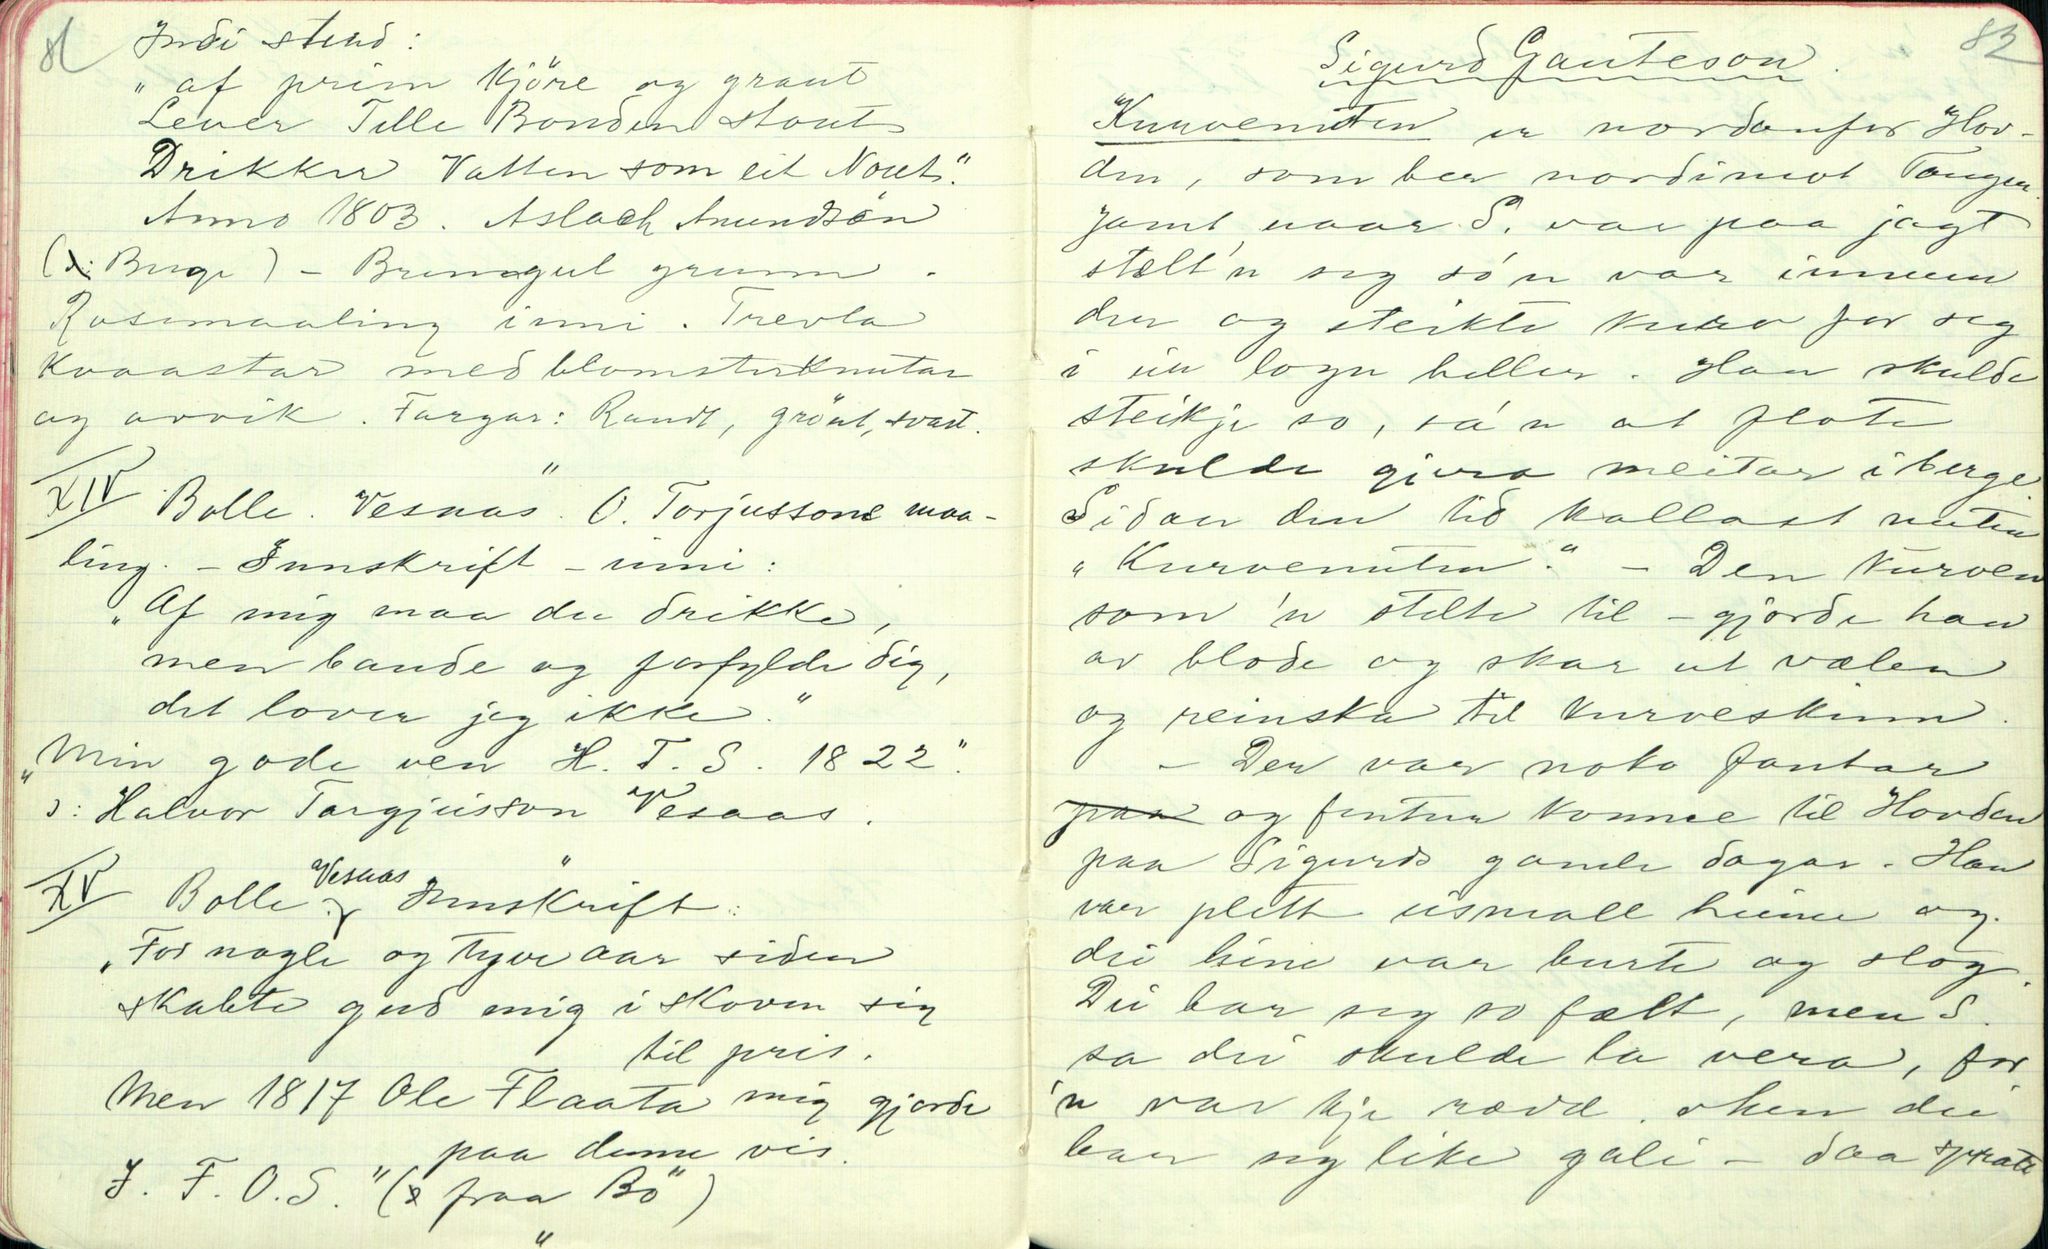 81
Indi stend:
"af prim Kjöre og graut
Lever Telle Bonden stout
Drikker Vatten som eit Nout."
Anno 1803. Aslach Amundsøn
(ɔ: Bugi) - Brungul grunn.
Rosemaaling inni. Trevla
kvaastar med blomsterknutar
og orvik. Fargar: Raudt, grönt, svart.
"
XIV Bolle. Vesaas. O. Torjussons maa-
ling. - Innskrift - inni:
"Af mig maa du drikke,
men bande og forfylde dig,
det lover jeg ikke."
"Min gode ven H. T. S. 1822".
ɔ: Halvor Targjusson Vesaas.
"
XV Bolle. Vesaas Innskrift:
"For nogle og tyve aar siden
skabte gud mig i skoven sig
til pris.
Men 1817 Ole Flaata mig gjorde
paa denne vis.
J. F. O. S." (fraa Bö)
"
83
Sigurd Gauteson.
Kurvenuten er nordanfor Hov-
den, som ber nordimot Tangen.
Jamt naar S. var paa jagt
stelt'n seg so'n var innum
der og steikte kurv for seg
i ein logn heller. Han skulde
steikje so, sa'n at flote
skulde gjera meitar i berge.
Sidan den tid kallast nuten
"Kurvenuten." - Den kurven
som 'n stelte til - gjorde han
av blode og skar ut vælen
og reinska til kurveskinn.
- Der var noko fantar
paa og fentur komne til Hovden
paa Sigurds gamle dagar. Han
var plett eismall heime og
dei hine var burte og slog.
Dei bar seg so fælt, men S.
sa dei skulde la vera, for
'n var kje rædd. Men dei
bar seg like gali - daa sprate